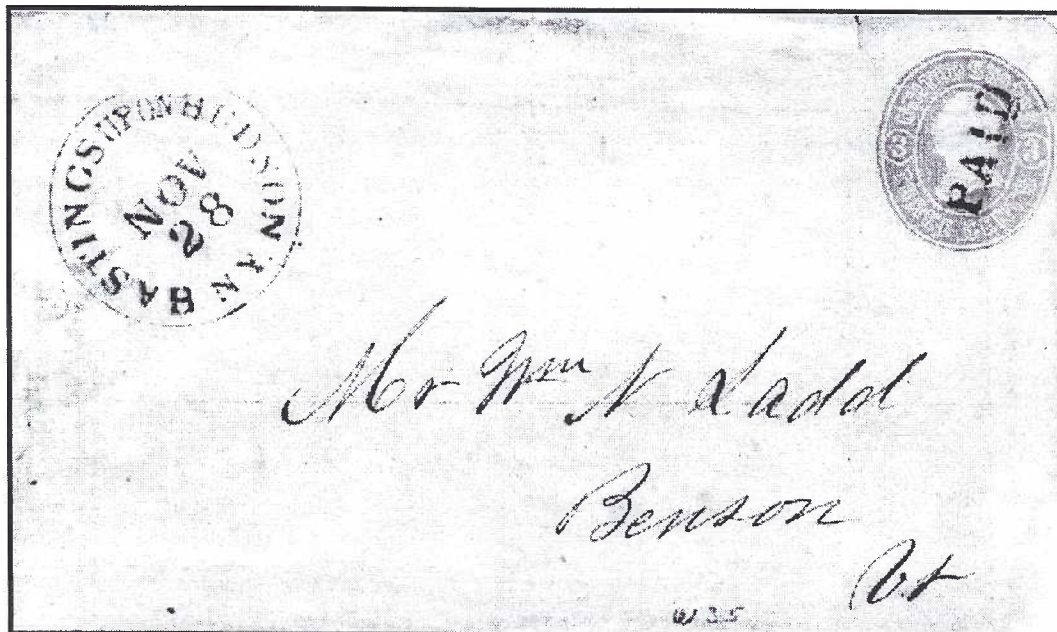 HASTINGS UPON HUDSON N.Y.
NOV
28
PAID
Mr Wm N Ladd
Benson
Vt
W35